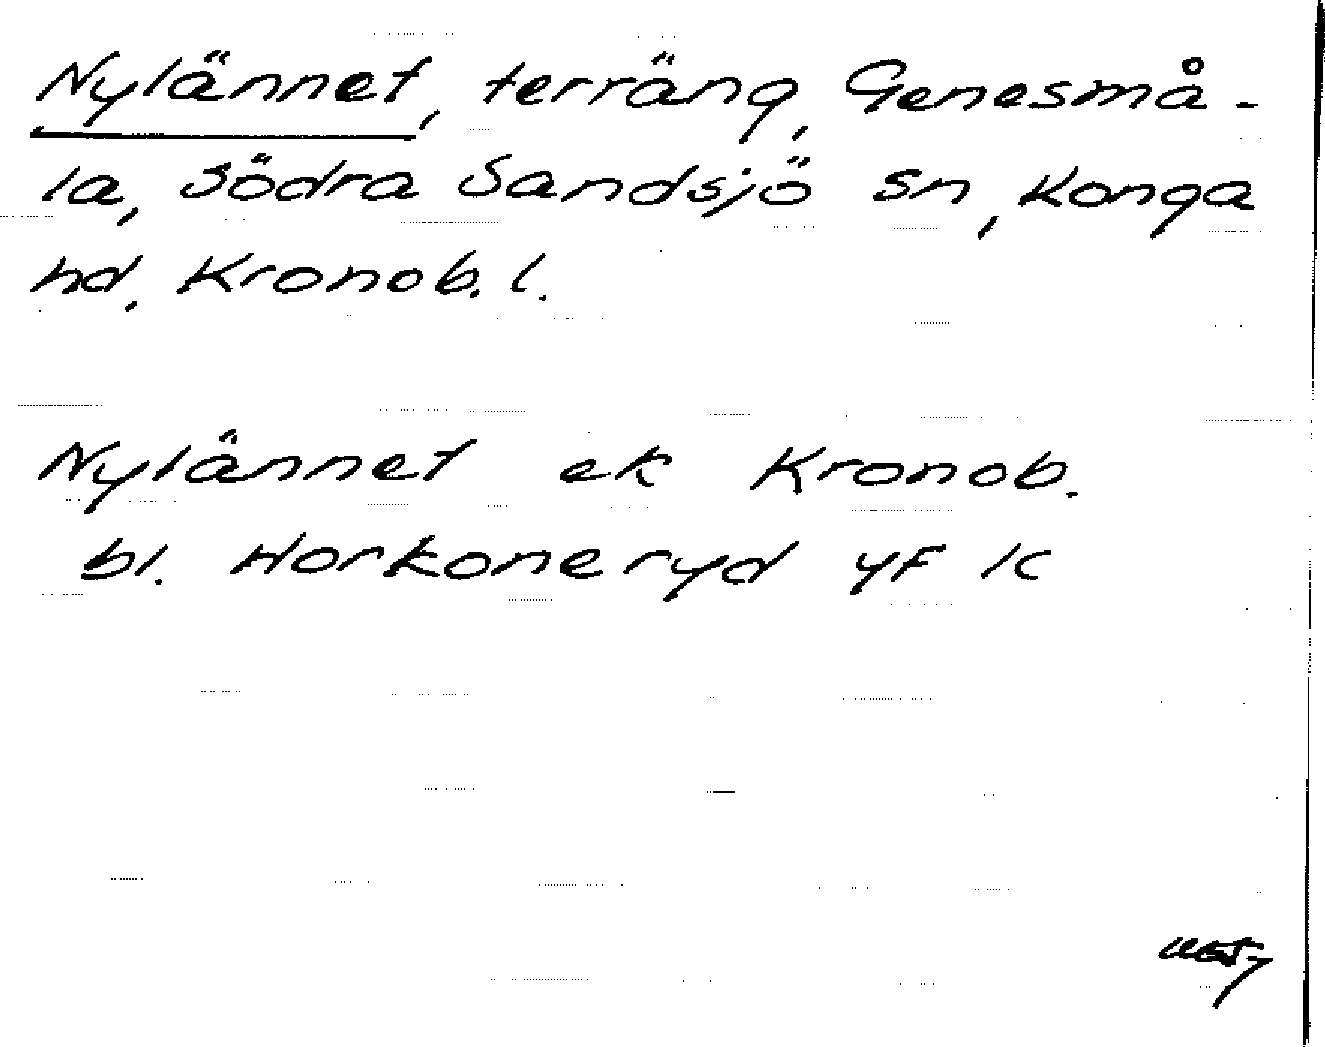 Nylännet, terräng, Genesmå-
la, Södra Sandsjö sn, Konga
hd, Kronob. l.
Nylännet ek Kronob.
bl. Horkoneryd yf k